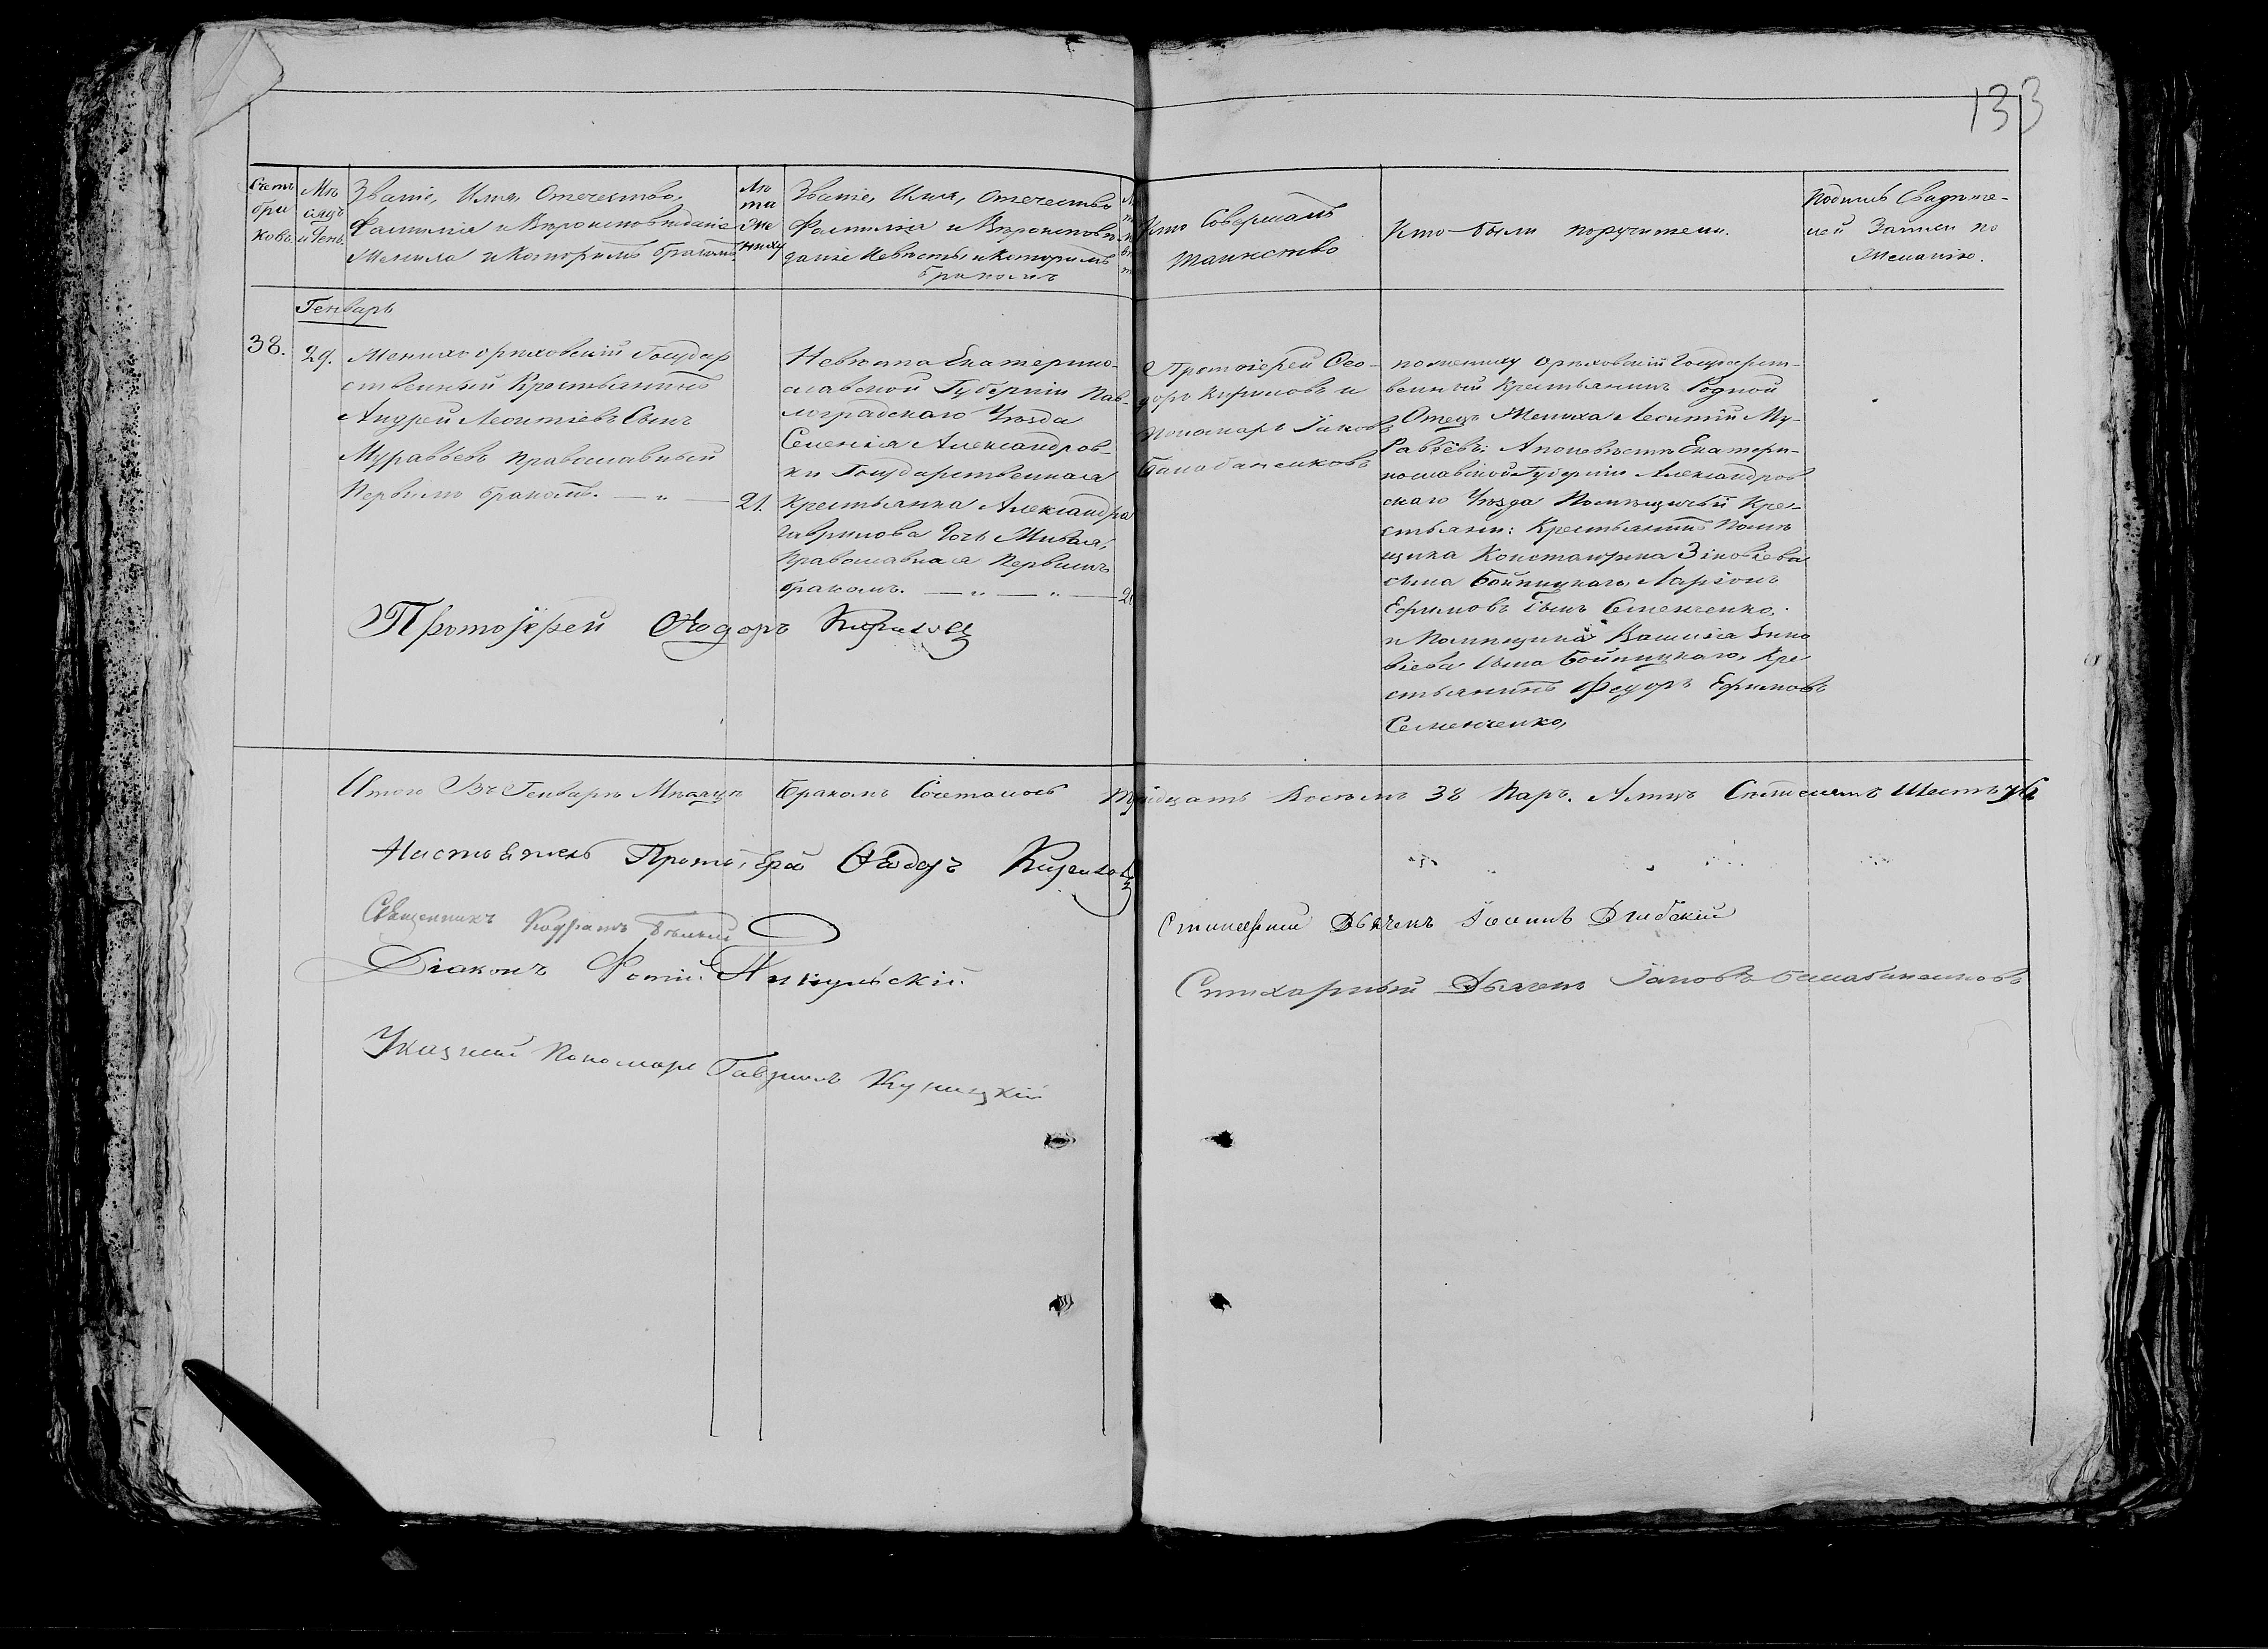 133
Счетъ бра ковъ.
Мѣ сяцъ и день.
Званіе, Имя, Отечество,
Фамилія и Вѣроисповѣданіе
Жениха и которымъ бракомъ
Лѣ та же ниху
Званіе, Имя, Отечество
Фамилія и Вѣроисповѣ-
даніе Невѣсты и которымъ
бракомъ
Кто Совершалъ
таинство
Кто были поручители.
Подпись Свидѣте-
лей Записи по
Желанію.
Генварь
38. 29.
Женихъ орѣховскій Государ
ственный Крестьянинъ
Андрей Леонтіевъ Сынъ
Муравьевъ православный
Первымъ бракомъ. — „ — 21.
Невѣста Екатерино-
славской Губерніи Пав-
лоградскаго Уѣзда
Селенія Александров-
ки Государственная
Крестьянка Александра
Гаврилова Дочь
Православная Первымъ
бракомъ. — „ — „ —
Протоіерей Ѳео-
доръ Кириловъ и
Пономарь Іаковъ
Балабанениковъ
по жениху орѣховскій Государст-
венный Крестьянинъ Родной
Отецъ Жениха Леонтій Му-
равьевъ: А по невѣстѣ Екатери-
нославской Губерніи Александров
скаго Уѣзда Помѣщичьи Кре-
стьяни: Крестьянинъ Помѣ
щика Константина Зіновіева
сына Бойницкаго, Ларіонъ
Ефимовъ Сынъ Семенченко,
и Помѣщика Василія Зино
віева Сына Бойницкаго, Кре
стьянинъ Федоръ Ефимовъ
Семенченко,
Протоіерей Ѳеодоръ Кириловъ
Итого Въ Генварѣ Мѣсяцѣ Бракомъ Сочеталось Тридцать Восемь 38 Паръ. А лицъ Семдесятъ Шесть 76
Настоятель Протоіерей Ѳеодоръ Кириловъ
Священникъ Кодратъ
Діаконъ Фотій
Указный Пономарь Гавріилъ Куницкій
Стихарный Дьячекъ Іоаннъ
Стихарный Дьячекъ Іаковъ Балабанениковъ